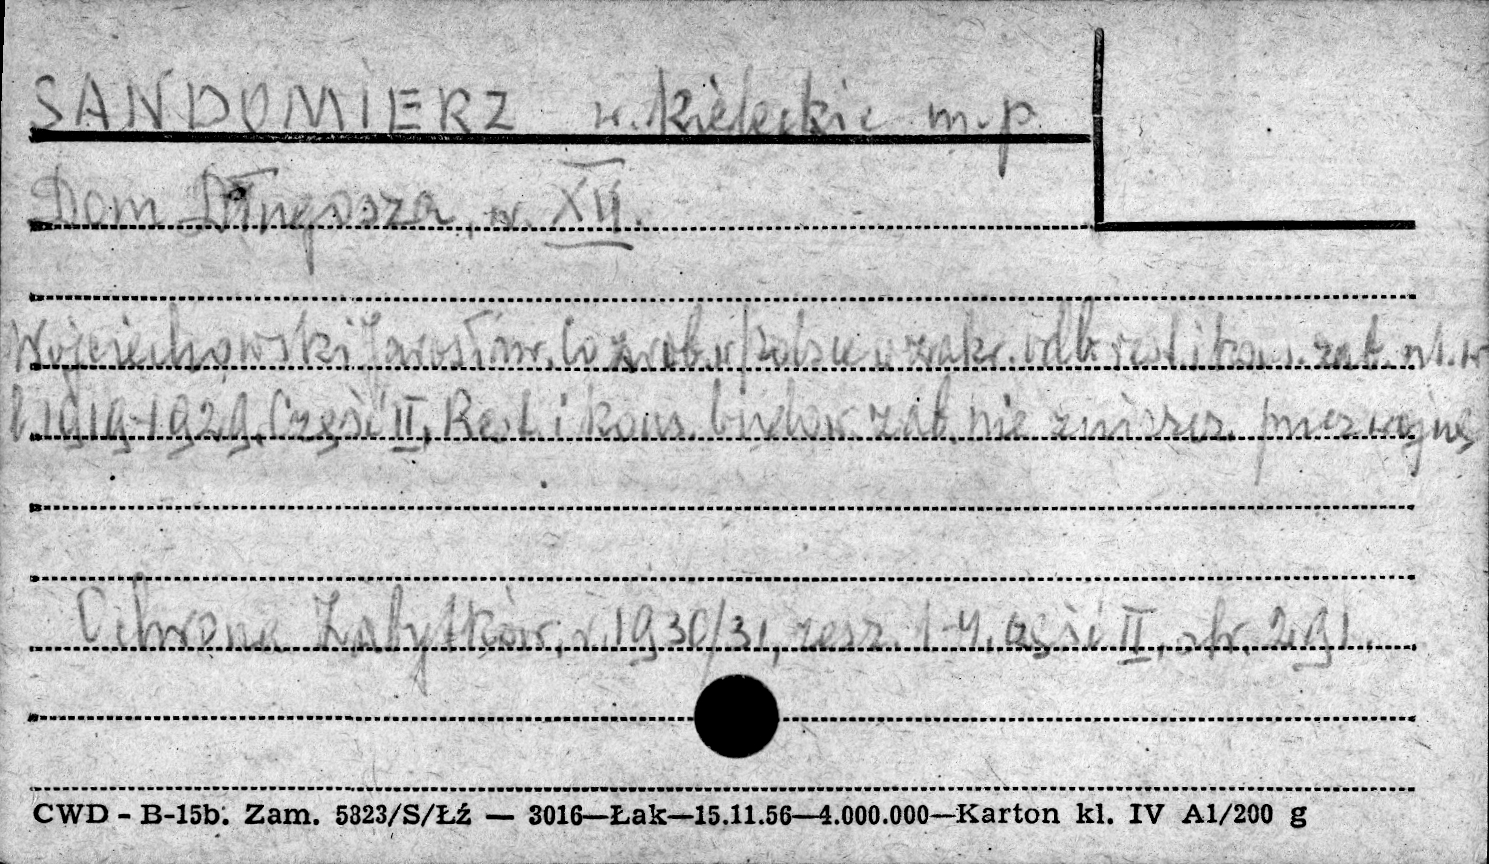 SANDOMIERZ w. kieleckie m. p.
Dom Długosza, w. XVII.
Wojciechowski Jarosław. Co zrob. w Polsce w zakr. odb. rest. i kons. zab. w
l. 1919-1929. Część II, Rest. i kons. budow. zab. nie zniszcz. przez wojnę
Ochrona Zabytków, r. 1930/31, zesz. 1-4, część II, str. 291.
CWD - B-15b. Zam. 5823/S/Łź — 3016—Łak—15.11.56—4.000.000—Karton kl. IV A1/200 g